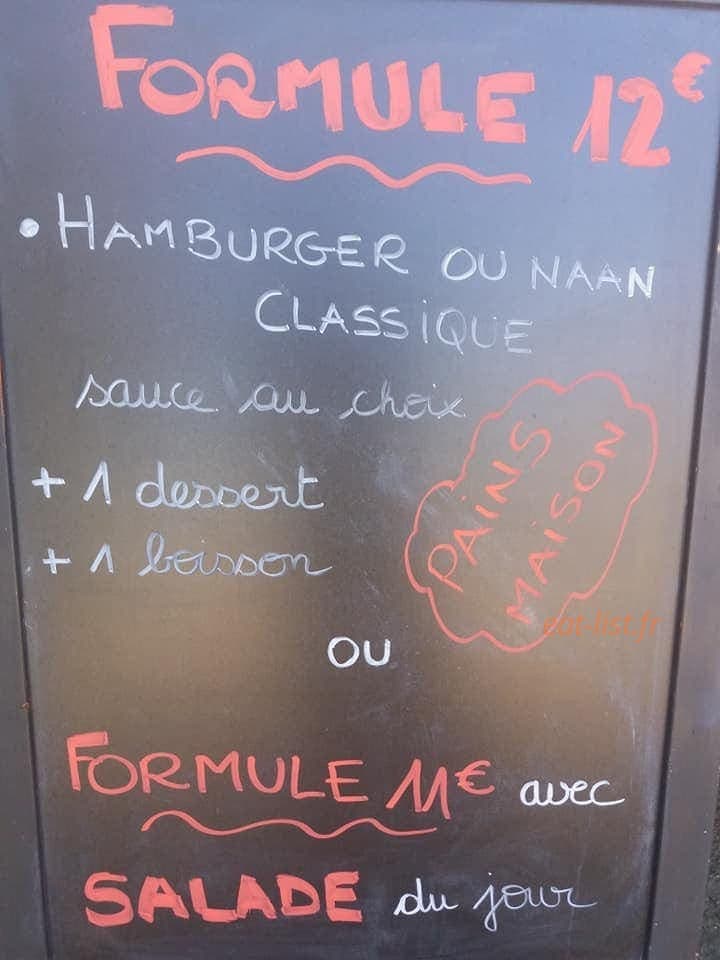 FORMULE 12€
• HAMBURGER OU NAAN
CLASSIQUE
sauce au choix
+ 1 dessert
+ 1 boisson
PAINS
MAISON
eat-list.fr
OU
FORMULE 11€ avec
SALADE du jour